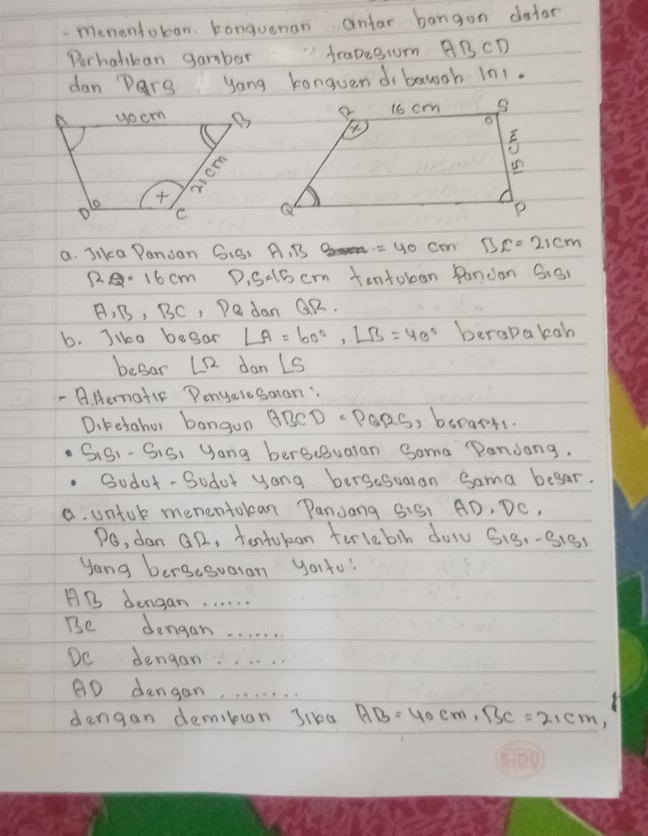 - menentukan konguenan antar bangun datar
Perhatikan gambar trapesium ABCD
dan PQRS yang konguen dibawah ini.
A 40 cm B R 16 cm S
21 cm 15 cm
D x C Q P
a. Jika Panjan sisi A,B = 40 cm BC = 21 cm
RQ = 16 cm P,S=15 cm tentukan Panjan sisi
A,B, BC, PQ dan QR.
b. Jika besar ∠A = 60°, ∠B = 40° berapakah
besar ∠R dan ∠S
- Alternatif Penyelesaian:
Diketahui bangun ABCD = PQRS, berarti.
• Sisi - Sisi yang bersesuaian sama Panjang.
• Sudut - Sudut yang bersesuaian sama besar.
a. untuk menentukan Panjang sisi AD, DC,
PQ, dan QR, tentukan terlebih dulu sisi-sisi
yang bersesuaian yaitu:
AB dengan ......
BC dengan .......
DC dengan ......
AD dengan ........
dengan demikian Jika AB = 40 cm, BC = 21 cm,
SIDU